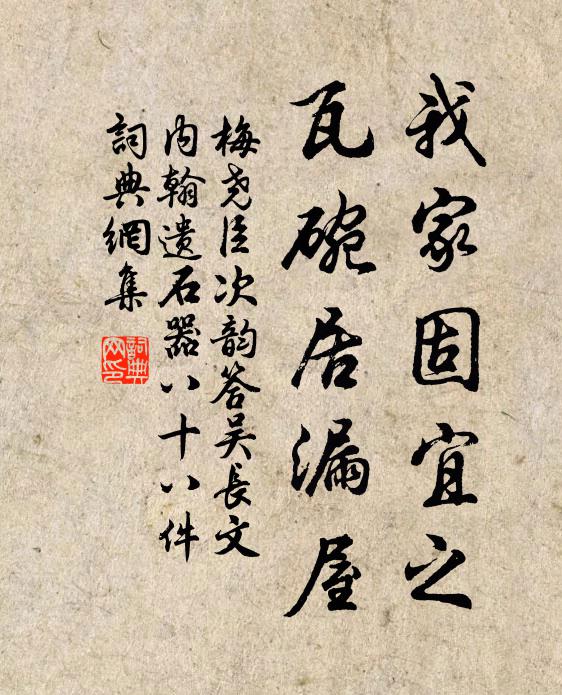 我家固宜之
瓦碗居漏屋
梅尧臣次韵答吴长文
内翰遗石器八十八件
詞典網集
詞典网印